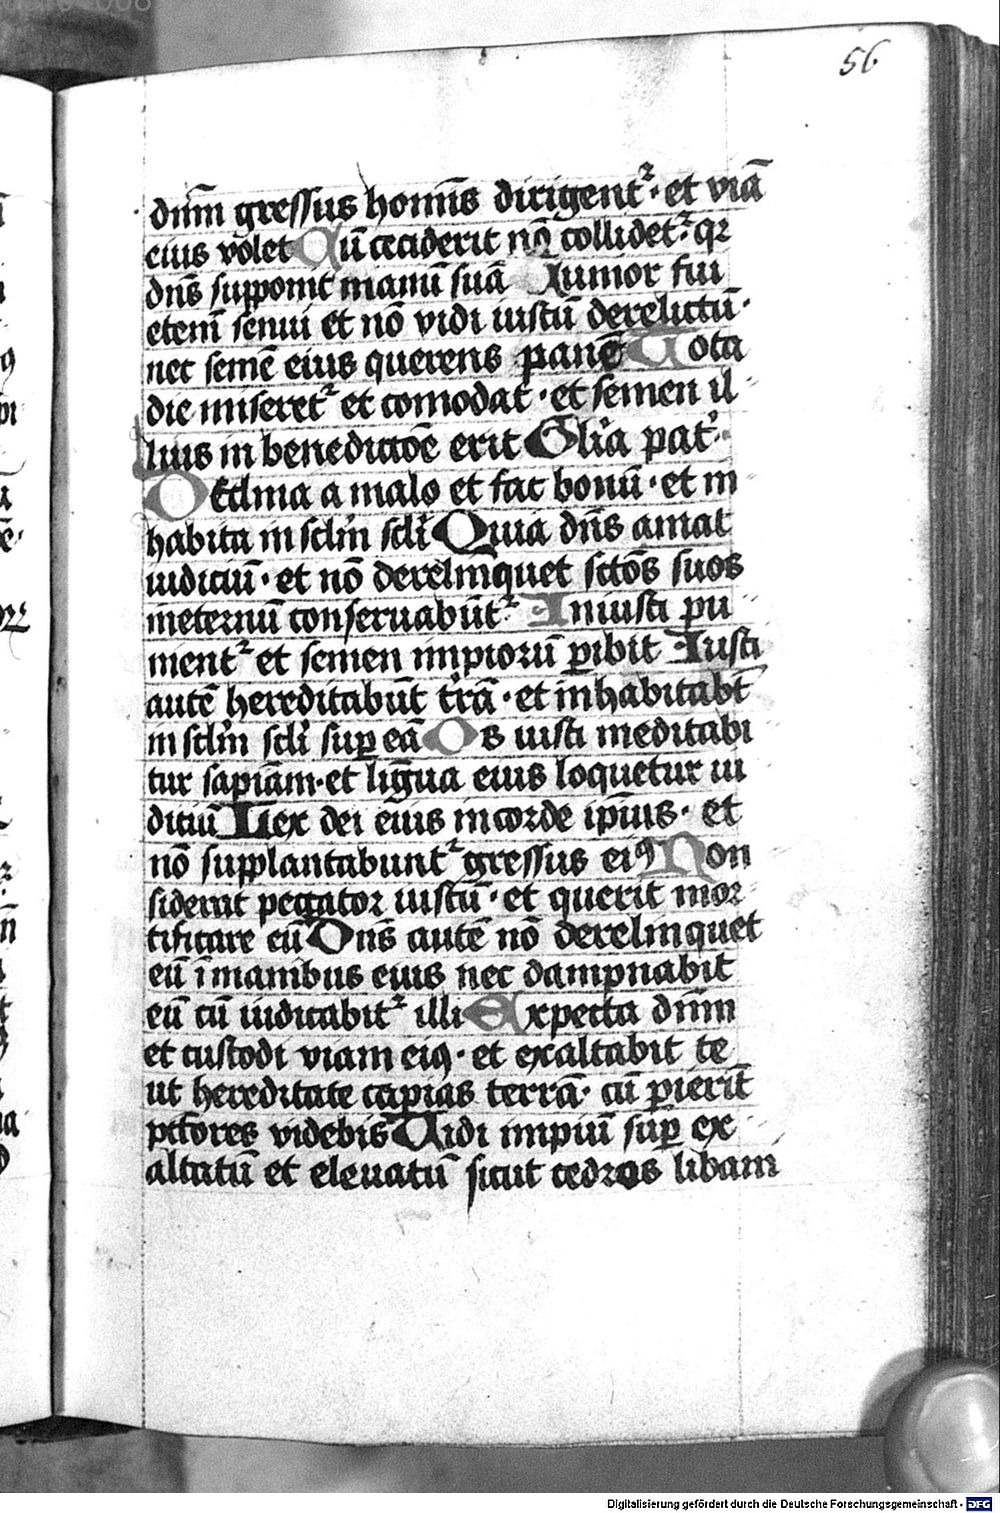 56
dnm̄ gressus homīs dirigentᷣ · et viā
eius volet Cū ceciderit nō collidetᷣ qꝛ
dn̄s supponit manū suā Iunior fui
etenī senui et nō vidi iustū derelictū ·
nec semē eius querens panē Tota
die miseretᷣ et comodat · et semen il
lius in benedictōe erit Glīa patᷣ
DEclina a malo et fac bonū · et in
habita in sclm̄ scli Quia dn̄s amat
iudiciū · et nō derelinquet sctōs suos
ineternū conseruabūtᷣ Iniusti pu
nientᷣ et semen impioꝝ ꝑibit Iusti
autē hereditabūt tr̄ā · et inhabitabt̄
in sclm̄ scli suꝑ eā Os iusti meditabi
tur sapiām · et lingua eius loquetur iu
diciū Lex dei eius in corde ipīus · et
nō supplantabuntᷣ gressus eiꝰ Con
siderat peccator iustū · et querit mor
tificare eū Dn̄s autē nō derelinquet
eū ī manibus eius nec dampnabit
eū cū iudicabitᷣ illi Expecta dnm̄
et custodi viam eiꝰ · et exaltabit te
ut hereditate capias terrā · cū ꝑierīt
pctōres videbis Vidi impiū suꝑ ex
altatū et eleuatū sicut cedros libani
Digitalisierung gefördert durch die Deutsche Forschungsgemeinschaft - DFG